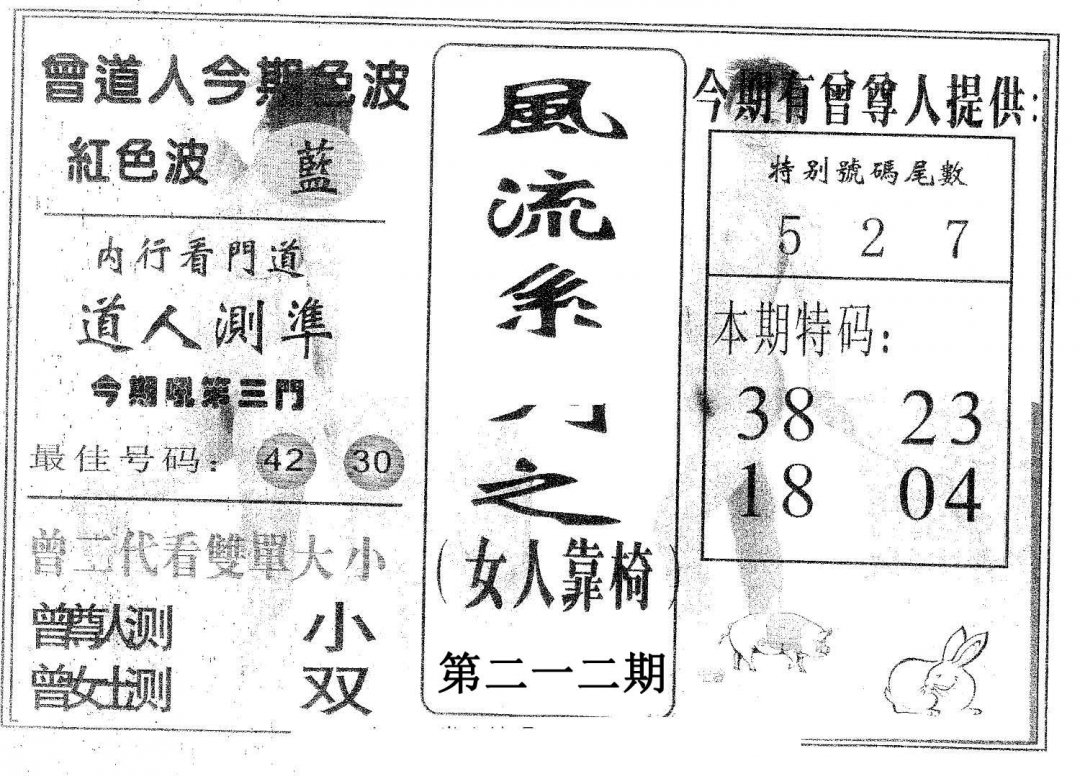 曾道人今期色波
紅色波 藍
内行看門道
道人測準
今期吼第三門
最佳号码: 42 30
曾二代看雙單大小
曾尊人测 小
曾女士测 双
風流系
之
(女人靠椅)
第二一二期
今期有曾尊人提供:
特别號碼尾數
5 2 7
本期特码:
38 23
18 04